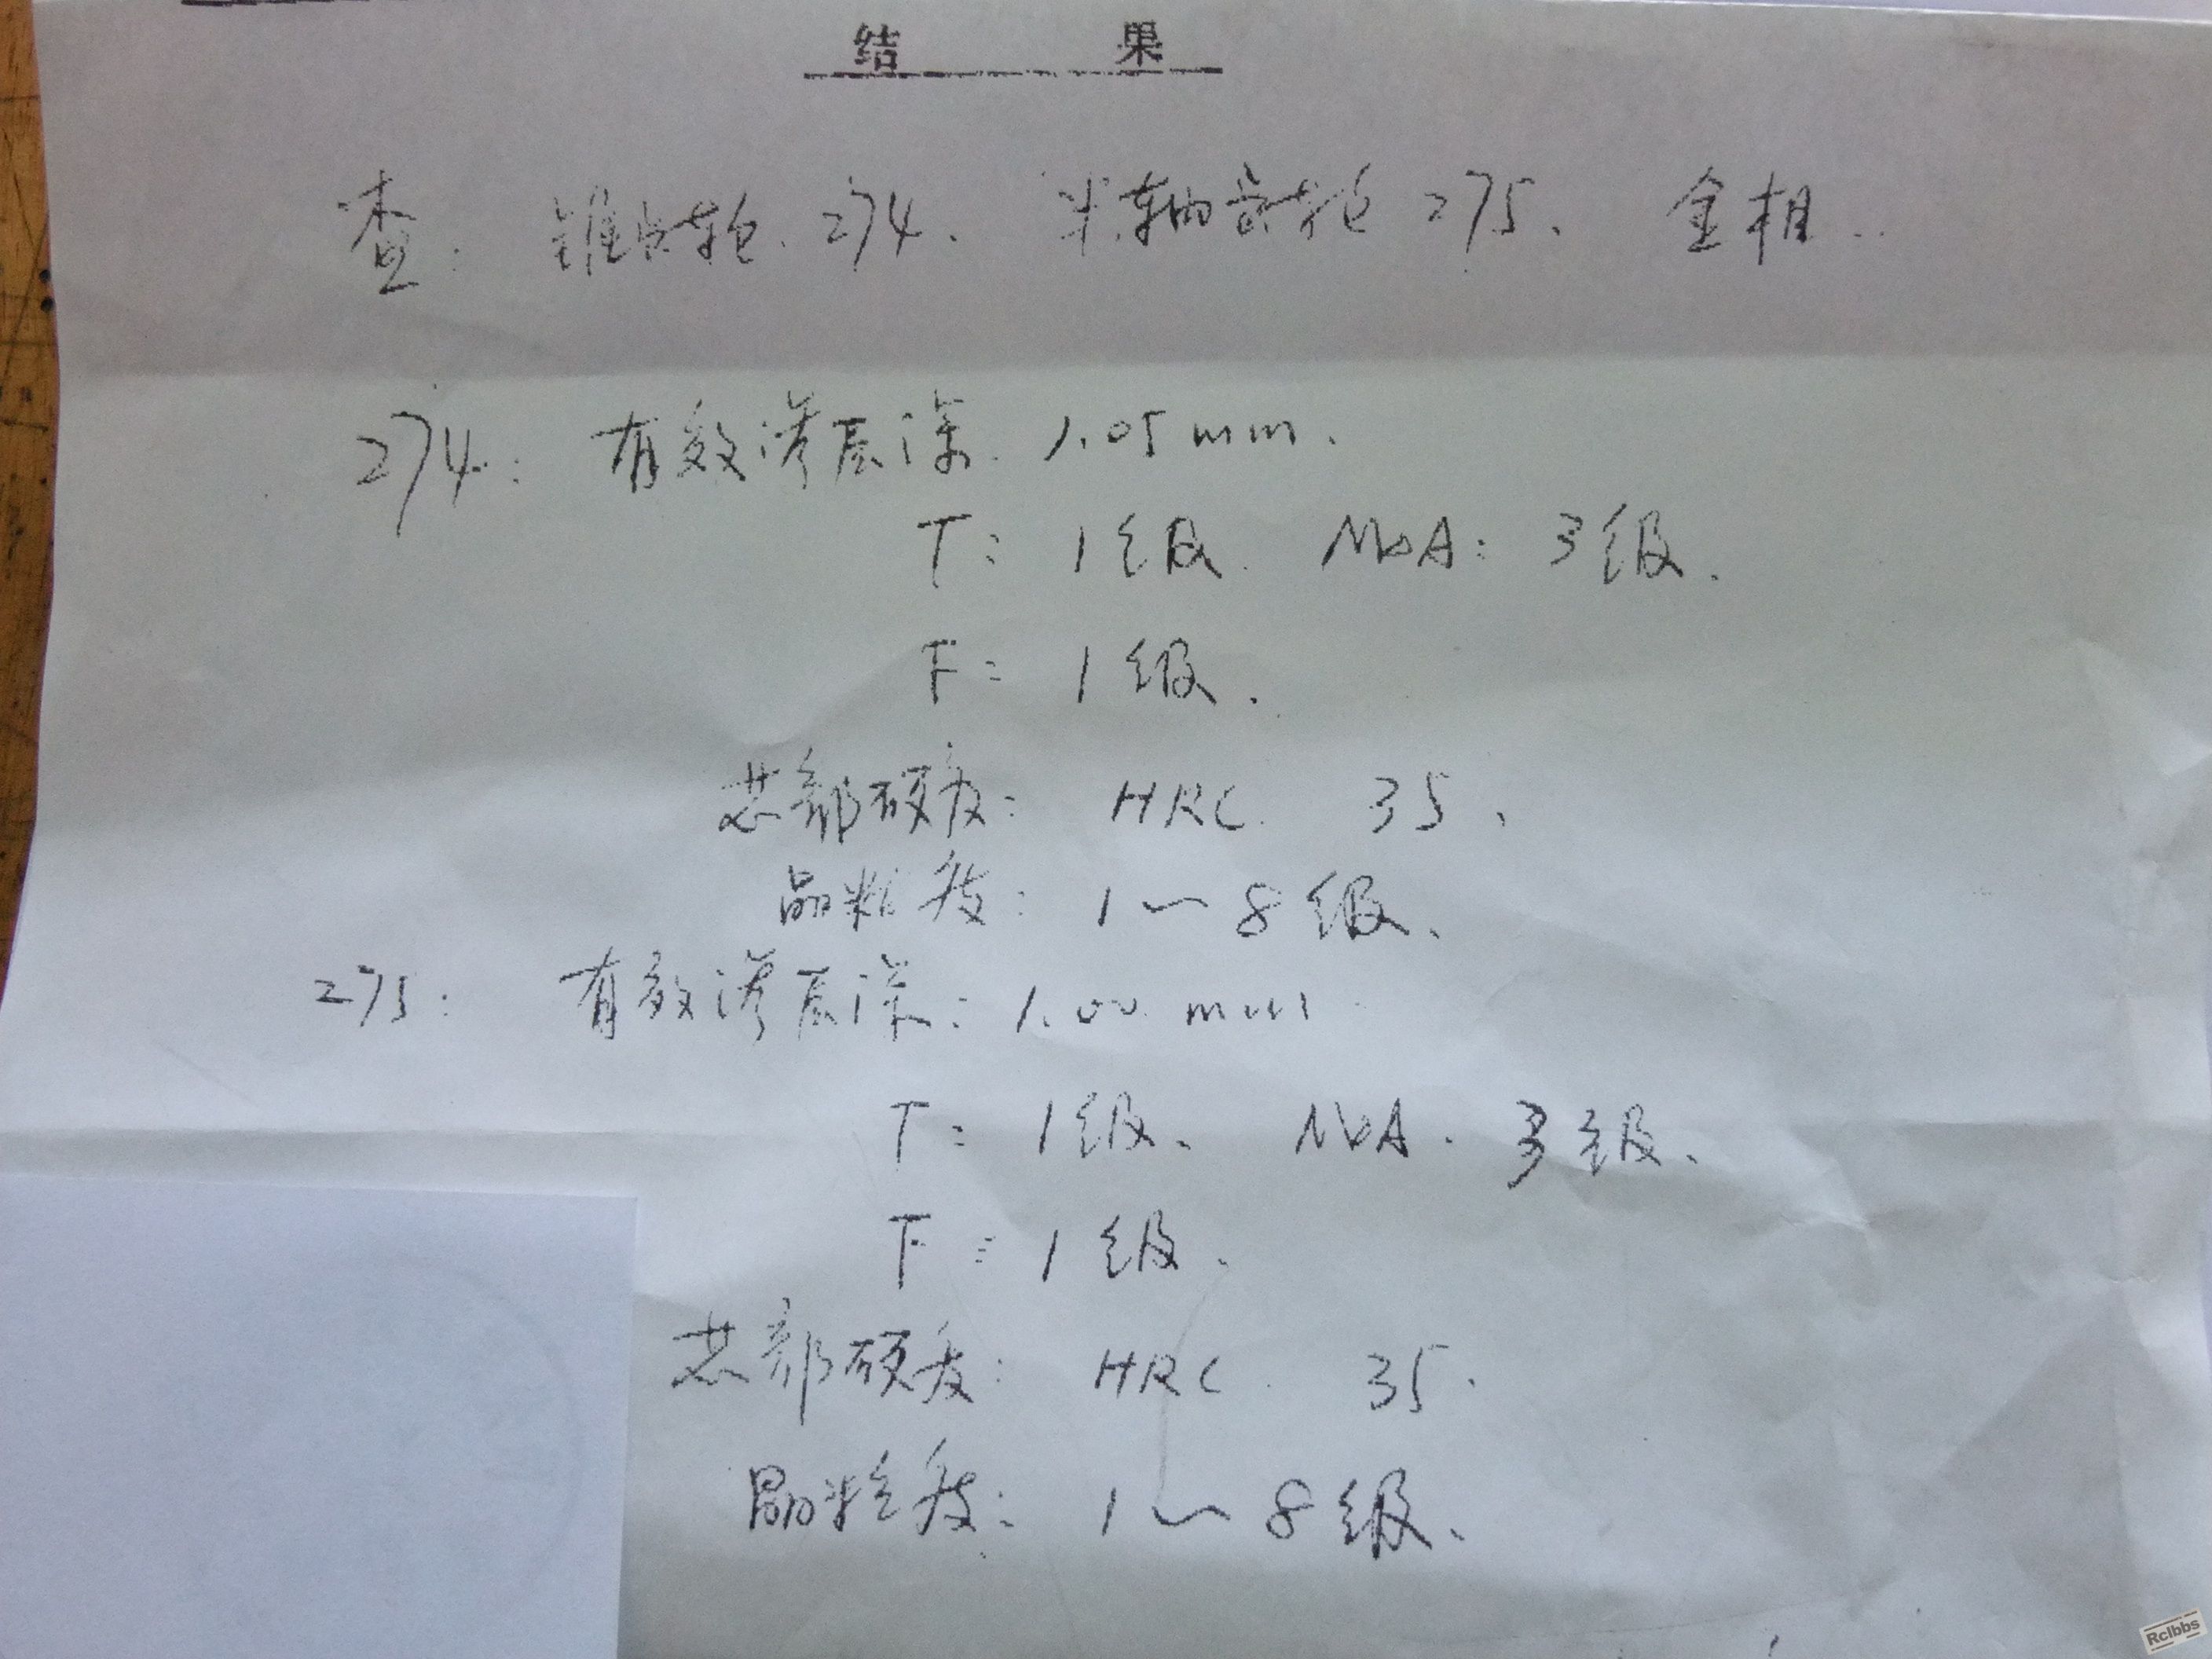 结 果
查: 锥齿轮 274、 半轴齿轮 275、 金相..
274: 有效渗层深 1.05mm.
T: 1级. MbA: 3级.
F: 1级.
芯部硬度: HRC 35、
晶粒度: 1~8级、
275: 有效渗层深: 1.00 mm
T: 1级、 MbA. 3级、
F: 1级.
芯部硬度: HRC 35.
晶粒度: 1~8级、
Rclbbs